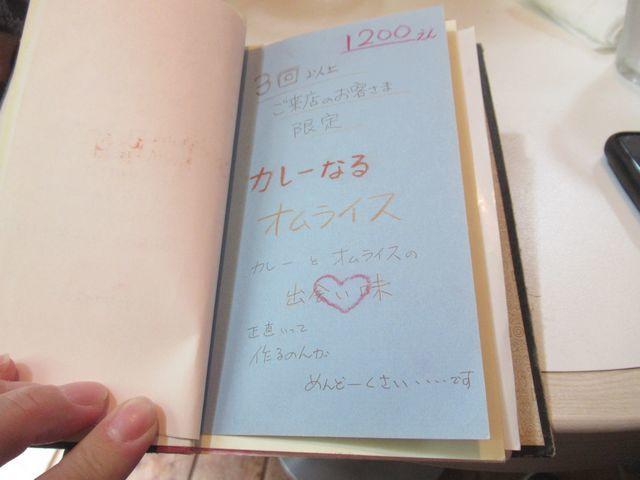 1200えん
3回以上
ご来店のお客さま
限定
カレーなる
オムライス
カレーとオムライスの
出会い味
正直いって
作るのんが
めんどーくさい・・・・です